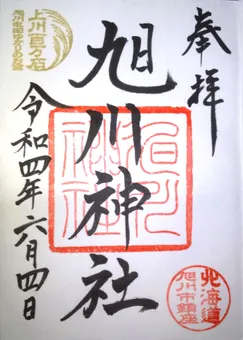 奉拝
旭川神社
令和四年六月四日
上川百万石
旭川神社
北海道
旭川市鎮座